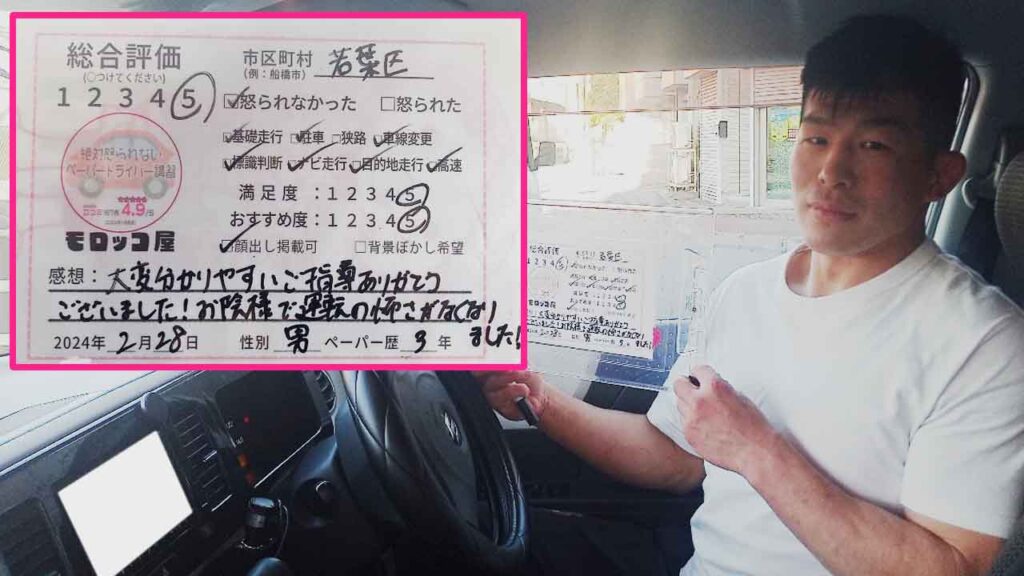 総合評価
(○つけてください)
1 2 3 4 5
市区町村
(例:船橋市)
若葉区
☑怒られなかった □怒られた
☑基礎走行 ☑駐車 □狭路 ☑車線変更
☑標識判断 ☑ナビ走行 ☑目的地走行 ☑高速
満足度:1 2 3 4 5
おすすめ度:1 2 3 4 5
☑顔出し掲載可 □背景ぼかし希望
絶対怒られない
ペーパードライバー講習
★★★★★
4.9/5
モロッコ屋
感想:大変分かりやすいご指導ありがとう
ございました!お陰様で運転の怖さがなくなり
ました!
2024年2月28日 性別 男 ペーパー歴 3年